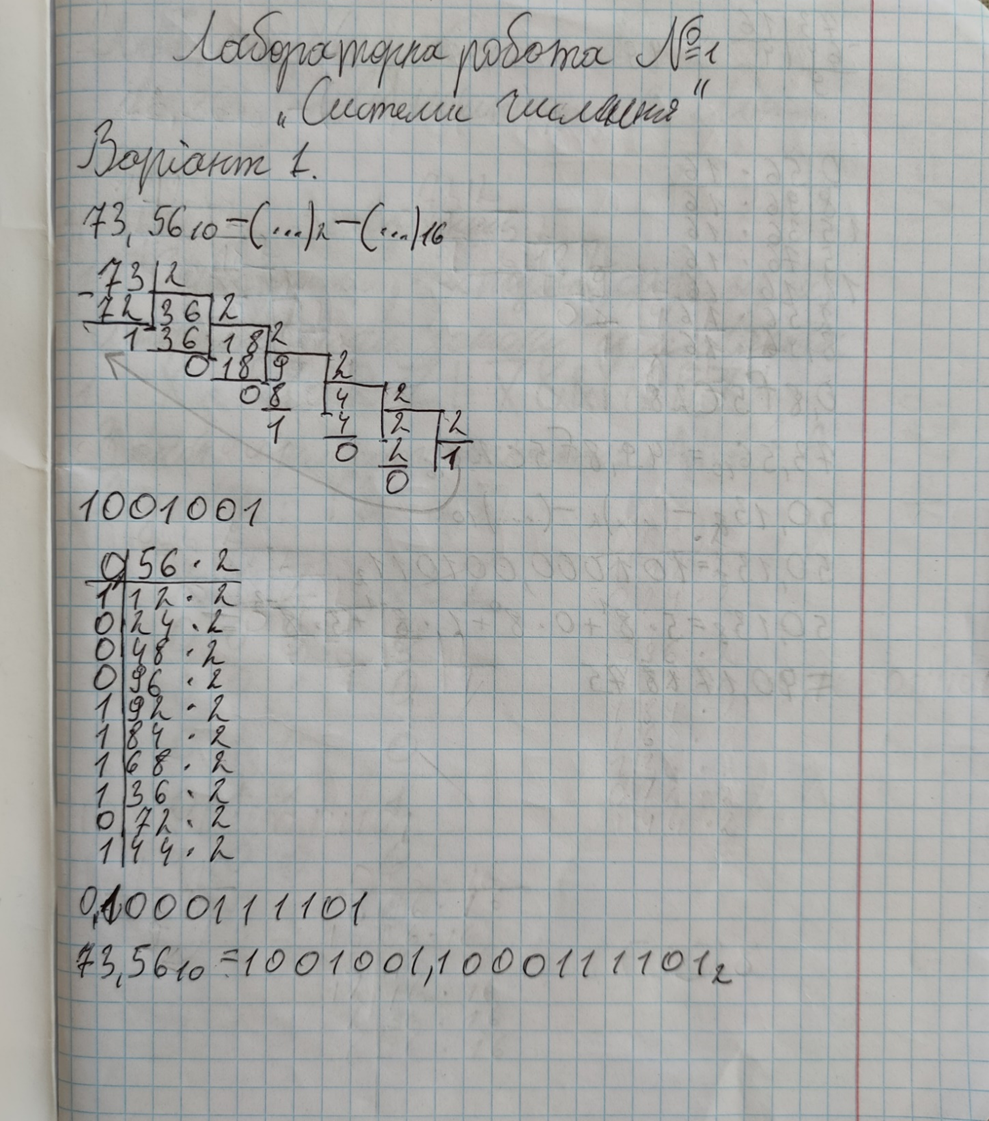 Лабораторна робота №1
„Системи числення"
Варіант 1.
73,56₁₀ – (...)₂ – (...)₁₆
73 2
72 36 2
1 36 18 2
0 18 9 2
0 8 4 2
1 4 2 2
0 2 1
0
1001001
0 56 · 2
1 12 · 2
0 24 · 2
0 48 · 2
0 96 · 2
1 92 · 2
1 84 · 2
1 68 · 2
1 36 · 2
0 72 · 2
1 44 · 2
0,1000111101
73,56₁₀ = 1001001,1000111101₂